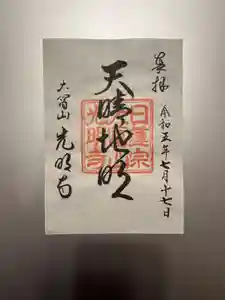 奉拝
令和五年七月十七日
天晴地明
日蓮宗
光明寺
大管山
光明寺